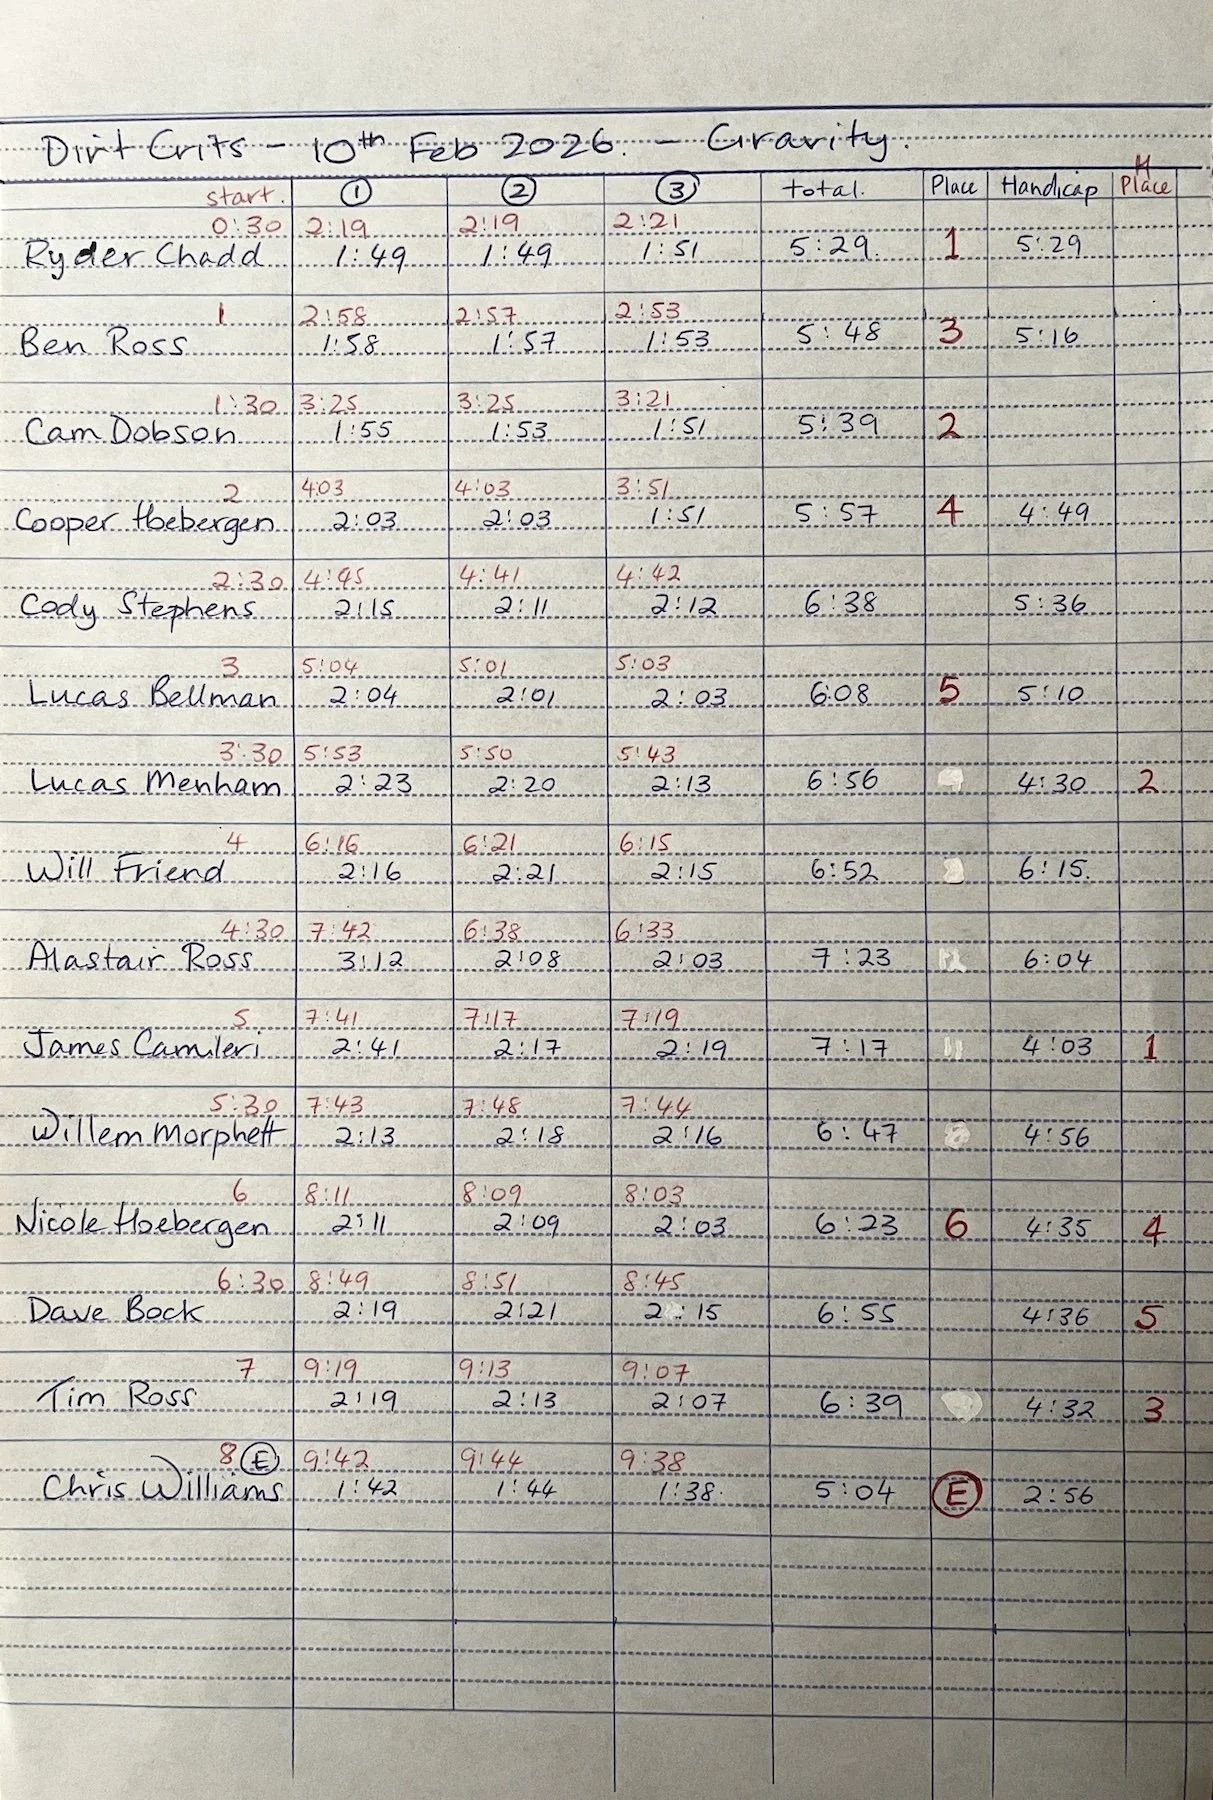 Dirt Crits - 10th Feb 2026. - Gravity.
start. 1 2 3 total. Place Handicap H Place
0:30 2:19 2:19 2:21
Ryder Chadd 1:49 1:49 1:51 5:29. 1 5:29
1 2:58 2:57 2:53
Ben Ross 1:58 1:57 1:53 5:48 3 5:16
1:30 3:25 3:25 3:21
Cam Dobson 1:55 1:53 1:51 5:39 2
2 4:03 4:03 3:51
Cooper Hoebergen 2:03 2:03 1:51 5:57 4 4:49
2:30 4:45 4:41 4:42
Cody Stephens 2:15 2:11 2:12 6:38 5:36
3 5:04 5:01 5:03
Lucas Bellman 2:04 2:01 2:03 6:08 5 5:10
3:30 5:53 5:50 5:43
Lucas Menham 2:23 2:20 2:13 6:56 4:30 2
4 6:16 6:21 6:15
Will Friend 2:16 2:21 2:15 6:52 6:15.
4:30 7:42 6:38 6:33
Alastair Ross 3:12 2:08 2:03 7:23 6:04
5 7:41 7:17 7:19
James Camileri 2:41 2:17 2:19 7:17 4:03 1
5:30 7:43 7:48 7:44
Willem Morphett 2:13 2:18 2:16 6:47 4:56
6 8:11 8:09 8:03
Nicole Hoebergen 2:11 2:09 2:03 6:23 6 4:35 4
6:30 8:49 8:51 8:45
Dave Bock 2:19 2:21 2:15 6:55 4:36 5
7 9:19 9:13 9:07
Tim Ross 2:19 2:13 2:07 6:39 4:32 3
8 E 9:42 9:44 9:38
Chris Williams 1:42 1:44 1:38. 5:04 E 2:56